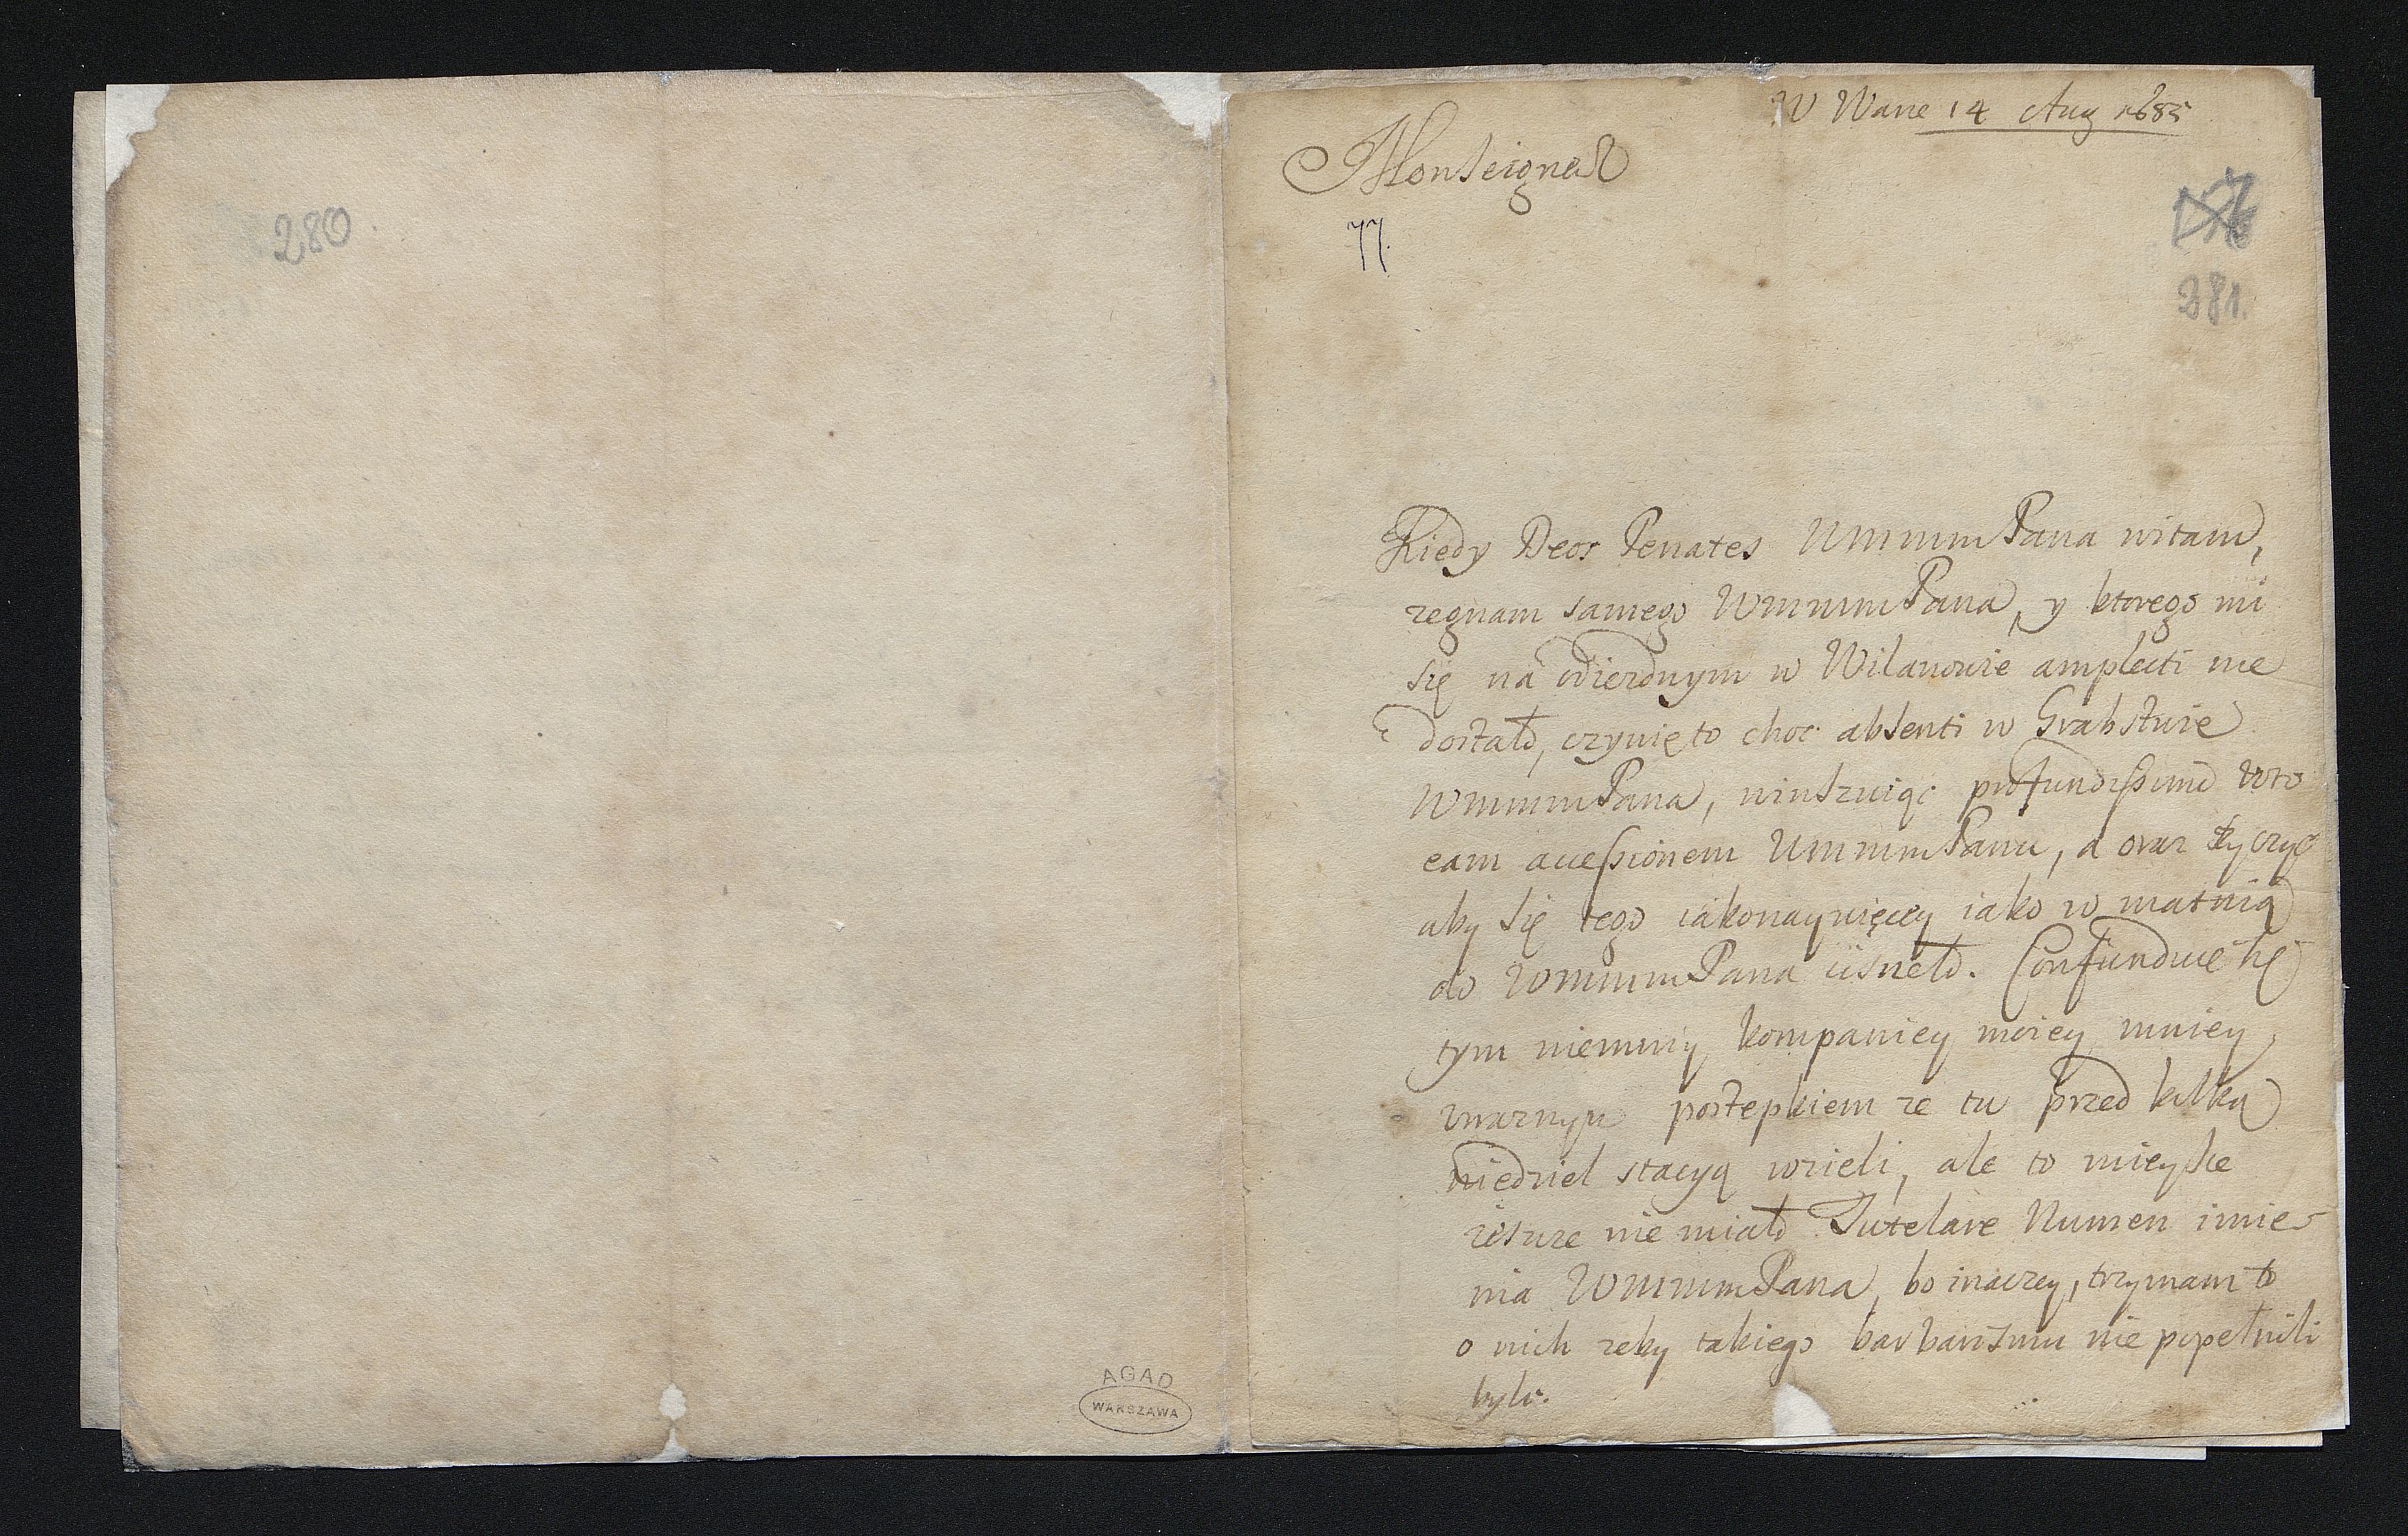 280
AGAD
WARSZAWA
W Wawe 14 Aug 1685
Monseigneur
77.
281.
Kiedy Deos Penates WMMMPana witam,
zegnam samego WMMMPana, y ktorego mi
się na odiezdnym w Wilanowie amplecti nie
dostało, czynię to choc absenti w Grabstwie
WMMMPana, winszuiąc profundissimo voto
eam accessionem WMMMPanu, a oraz życzyc
aby się tego iakonaywięcey iako w matnią
do WMMMPana cisnęło. Confunduię się
tym niemniy kompaniey moiey mniey
uwaznym postepkiem ze tu przed kilką
niedziel stacyą wzieli, ale to mieysce
ieszcze nie miało Tutelare Numen imie-
nia WMMMPana, bo inaczey, trzymam to
o nich zeby takiego barbarismu nie popełnili
byli.